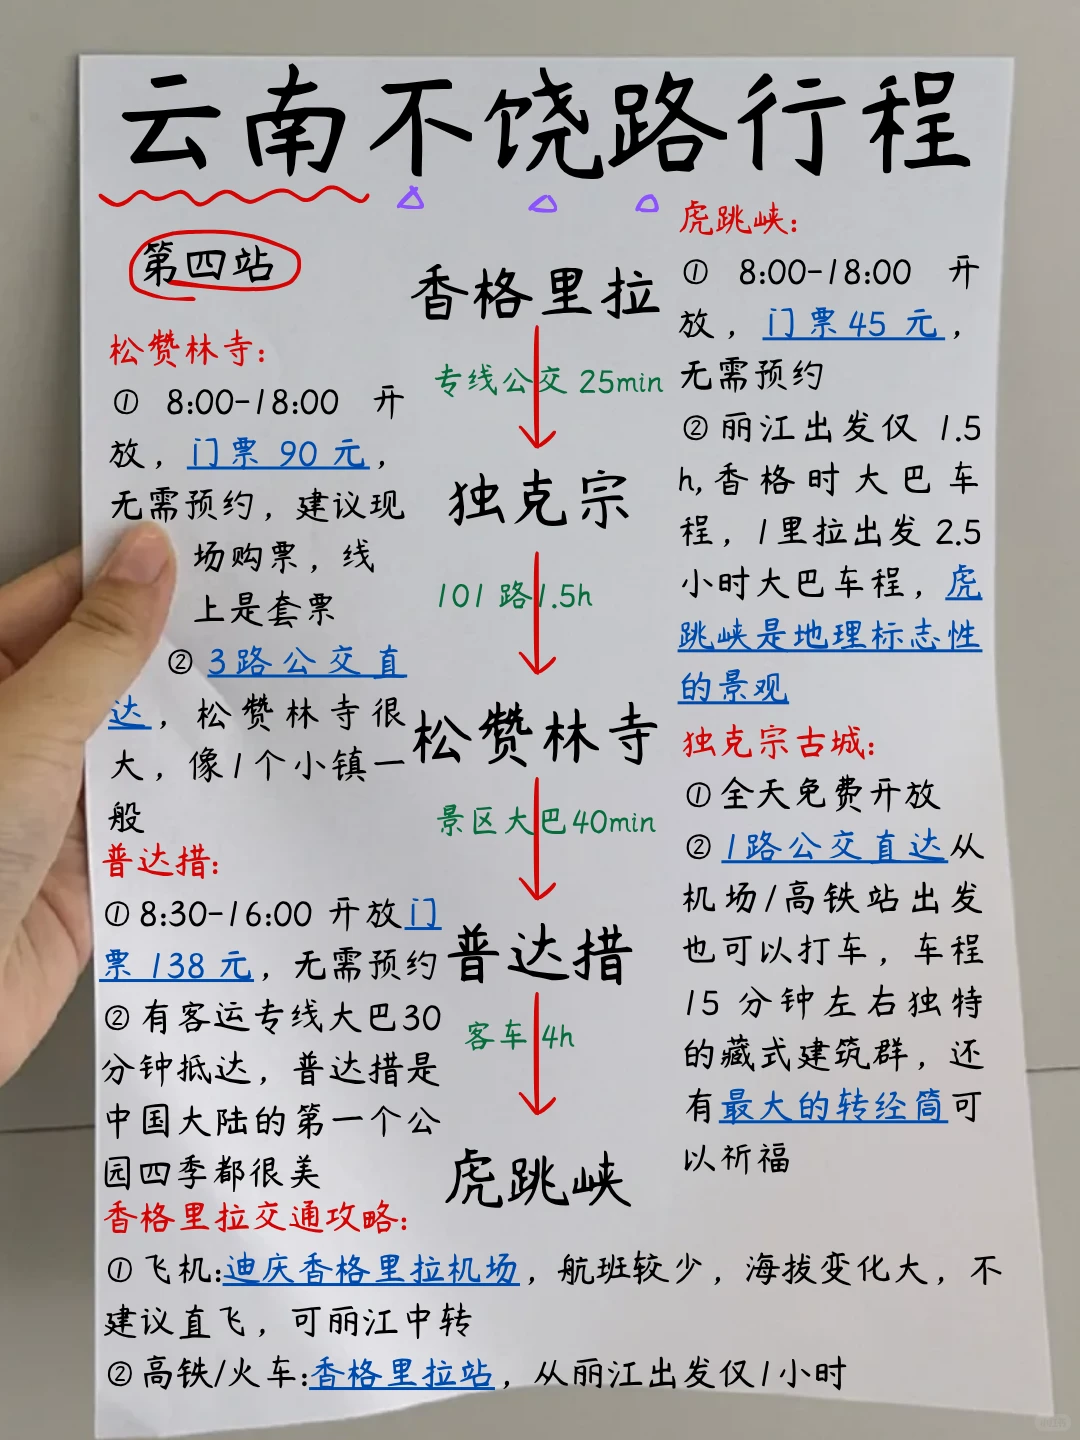 云南不饶路行程
第四站
松赞林寺：
① 8:00-18:00 开
放，门票 90 元，
无需预约，建议现
场购票，线
上是套票
② 3路公交直
达，松赞林寺很
大，像1个小镇一
般
普达措：
①8:30-16:00 开放门
票 138 元，无需预约
②有客运专线大巴30
分钟抵达，普达措是
中国大陆的第一个公
园四季都很美
香格里拉
专线公交 25min
独克宗
101 路 1.5h
松赞林寺
景区大巴40min
普达措
客车 4h
虎跳峡
虎跳峡：
① 8:00-18:00 开
放，门票45 元，
无需预约
②丽江出发仅 1.5
h,香格时大巴车
程，1里拉出发 2.5
小时大巴车程，虎
跳峡是地理标志性
的景观
独克宗古城：
①全天免费开放
② 1路公交直达从
机场/高铁站出发
也可以打车，车程
15 分钟左右独特
的藏式建筑群，还
有最大的转经筒可
以祈福
香格里拉交通攻略：
①飞机:迪庆香格里拉机场，航班较少，海拔变化大，不
建议直飞，可丽江中转
②高铁/火车:香格里拉站，从丽江出发仅1小时